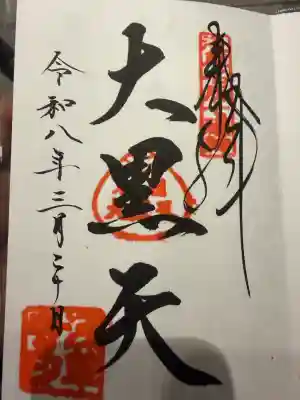 奉拝
大黒天
令和八年三月二十日